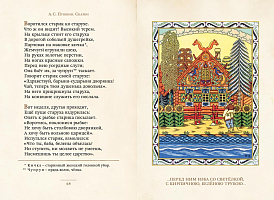 А. С. Пушкин. Сказки
Воротился старик ко старухе.
Что ж он видит? Высокий терем.
На крыльце стоит его старуха
В дорогой собольей душегрейке,
Парчовая на маковке кичка,*
Жемчуги огрузили шею,
На руках золотые перстни,
На ногах красные сапожки.
Перед нею усердные слуги;
Она бьёт их, за чупрун** таскает.
Говорит старик своей старухе:
«Здравствуй, барыня-сударыня дворянка!
Чай, теперь твоя душенька довольна».
На него прикрикнула старуха,
На конюшне служить его послала.
Вот неделя, другая проходит,
Ещё пуще старуха вздурилась:
Опять к рыбке старика посылает.
«Воротись, поклонися рыбке:
Не хочу быть столбовою дворянкой,
А хочу быть вольною царицей».
Испугался старик, взмолился:
«Что ты, баба, белены объелась?
Ни ступить, ни молвить не умеешь,
Насмешишь ты целое царство».
* Кичка – старинный женский головной убор.
** Чупрун – чуб, хохол.
...ПЕРЕД НИМ ИЗБА СО СВЕТЁЛКОЙ,
С КИРПИЧНОЮ, БЕЛЁНОЮ ТРУБОЮ...